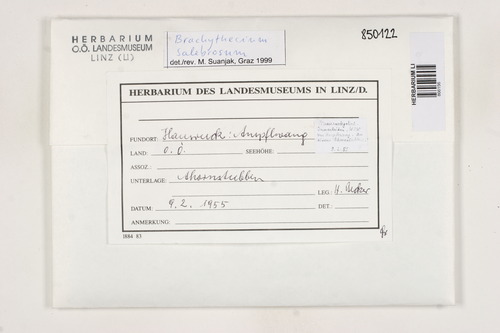 HERBARIUM
O.Ö. LANDESMUSEUM
LINZ (LI)
Brachythecium
salebrosum
det./rev. M. Suanjak, Graz 1999
850122
HERBARIUM LI
HERBARIUM DES LANDESMUSEUMS IN LINZ/D.
FUNDORT: Hausruck: Ampflwang
LAND: O.Ö. SEEHÖHE:
ASSOZ.:
UNTERLAGE: Ahornstubben
LEG.: H.
DATUM: 9.2.1955 DET.:
ANMERKUNG:
1884 83